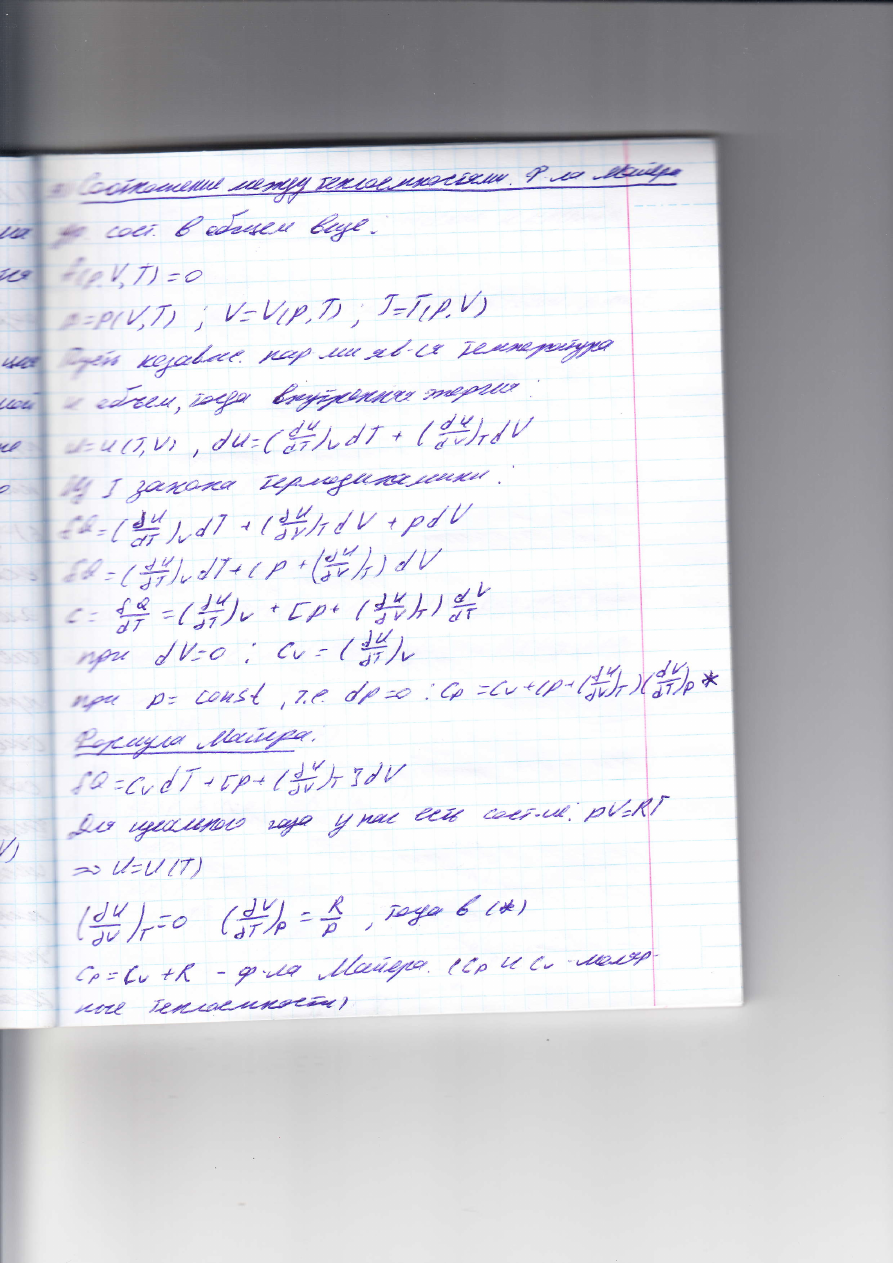 Соотношение между теплоемкостями. Ф-ла Майера
ур. сост. в общем виде:
f(p,V,T)=0
p=p(V,T) ; V=V(p,T) ; T=T(p,V)
Пусть независ. пар-ми яв-ся температура
и объем, тогда внутренняя энергия:
U=U(T,V) , dU=(dU/dT)_V dT + (dU/dV)_T dV
Из I закона термодинамики:
δQ=(dU/dT)_V dT + (dU/dV)_T dV + pdV
δQ=(dU/dT)_V dT+(p+(dU/dV)_T) dV
C= δQ/dT =(dU/dT)_V + [p+ (dU/dV)_T) dV/dT
при dV=0 ; C_V = (dU/dT)_V
при p= const , т.е. dp=0 : C_p =C_V+(p+(dU/dV)_T)(dV/dT)_p *
Формула Майера:
δQ=C_V dT+[p+(dU/dV)_T]dV
Для идеального газа у нас есть сост-ие: pV=RT
=> U=U(T)
(dU/dV)_T=0 (dV/dT)_p = R/p , тогда в (*)
C_p=C_V+R - ф-ла Майера. (C_p и C_V - моляр-
ные теплоемкости)